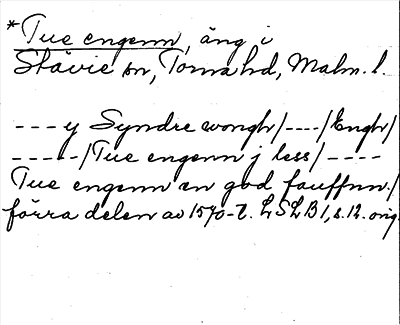 *Tue engenn, äng i
Stävie sn, Torna hd, Malm. l.
--- y Syndre wongh/----/Engh/
-----/Tue engenn j less/----
Tue engenn en god fauffnn./
förra delen av 1570-t. LSLB 1, s. 12. orig.